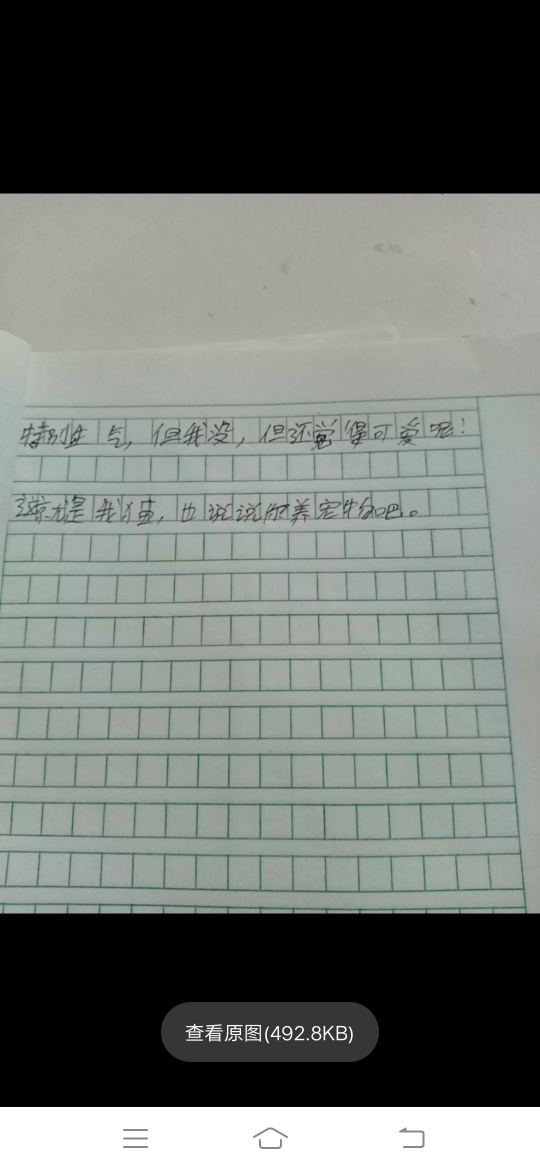 特别生气，但我没，但还觉得可爱呢！
这就是我猫，也说说你养宠物吧。
查看原图(492.8KB)